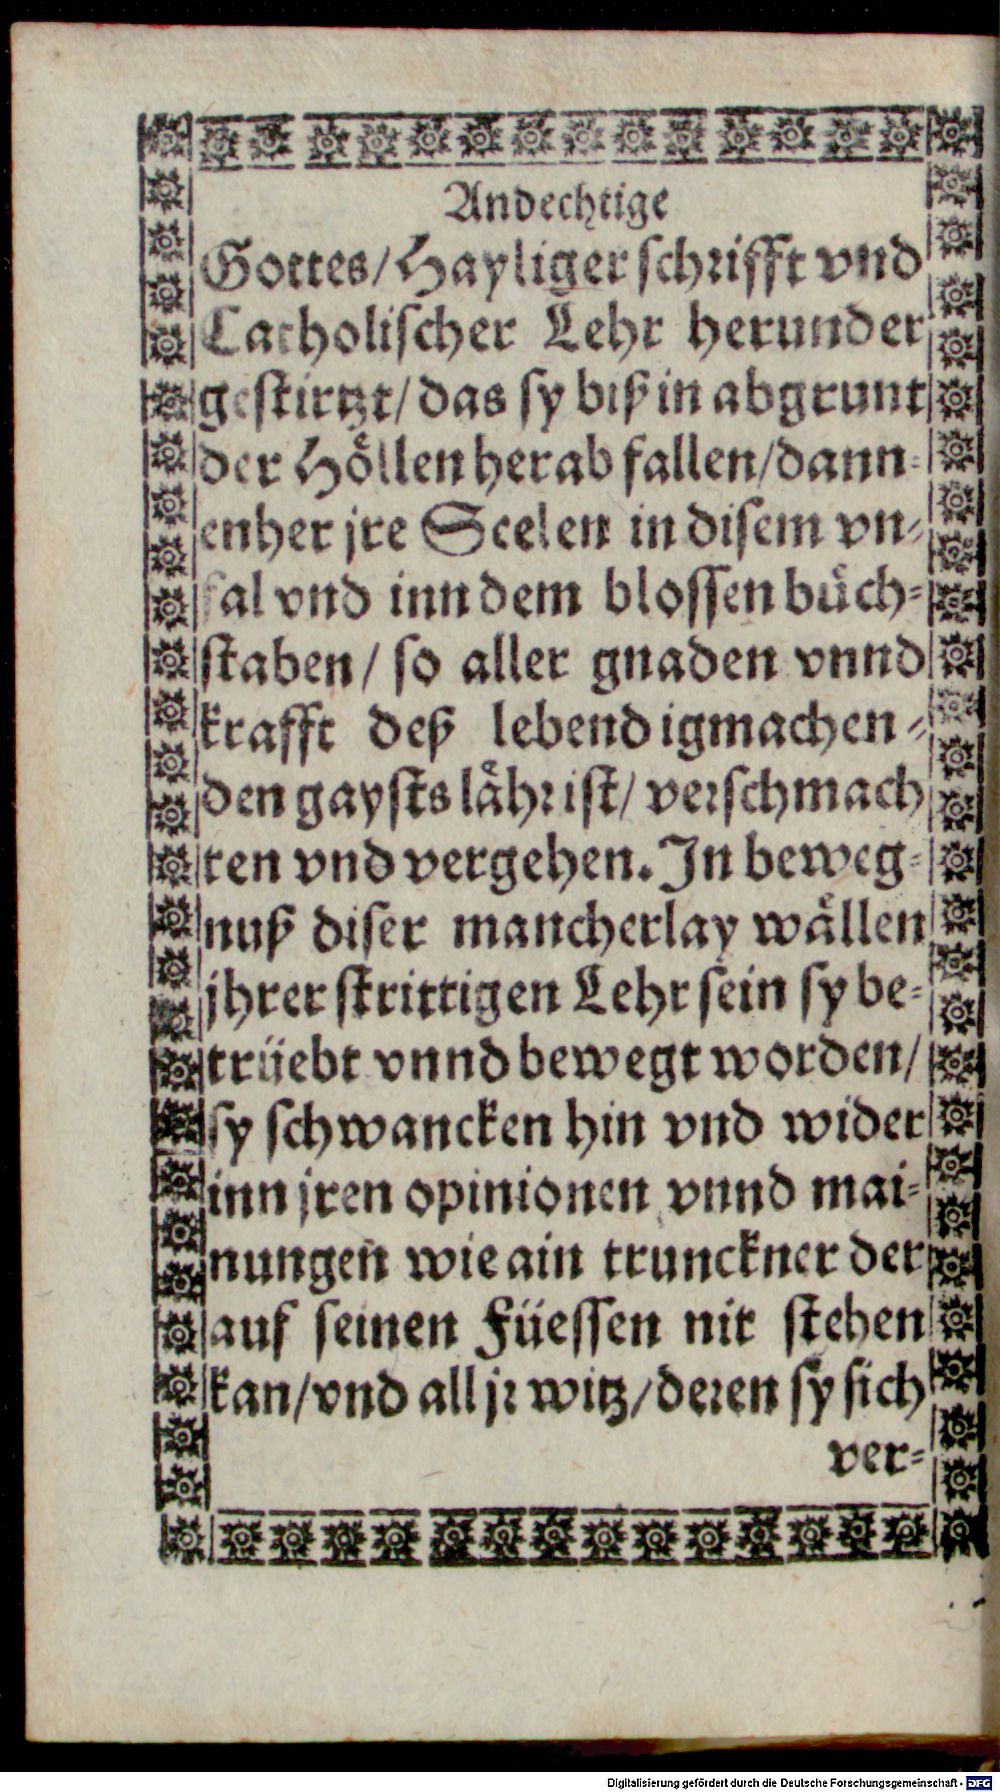 Andechtige
Gottes/ Hayliger schrifft vnd
Catholischer Lehr herunder
gestirtzt/ das sy biß in abgrunt
der Hoͤllen herab fallen/ dann-
enher jre Seelen in disem vn-
fal vnd inn dem blossen buͤch-
staben/ so aller gnaden vnnd
krafft deß lebendigmachen-
den gaysts laͤhr ist/ verschmach
ten vnd vergehen. In beweg-
nuß diser mancherlay waͤllen
jhrer strittigen Lehr sein sy be-
trüebt vnnd bewegt worden/
sy schwancken hin vnd wider
inn jren opinionen vnnd mai-
nungen wie ain trunckner der
auf seinen Füessen nit stehen
kan/ vnd all jr witz/ deren sy sich
ver-
Digitalisierung gefördert durch die Deutsche Forschungsgemeinschaft - DFG